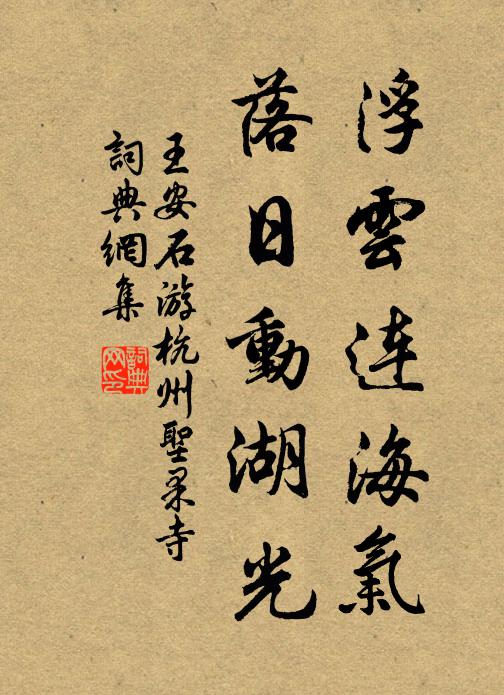 浮雲连海氣
落日動湖光
王安石游杭州聖果寺
詞典網集
詞典网印